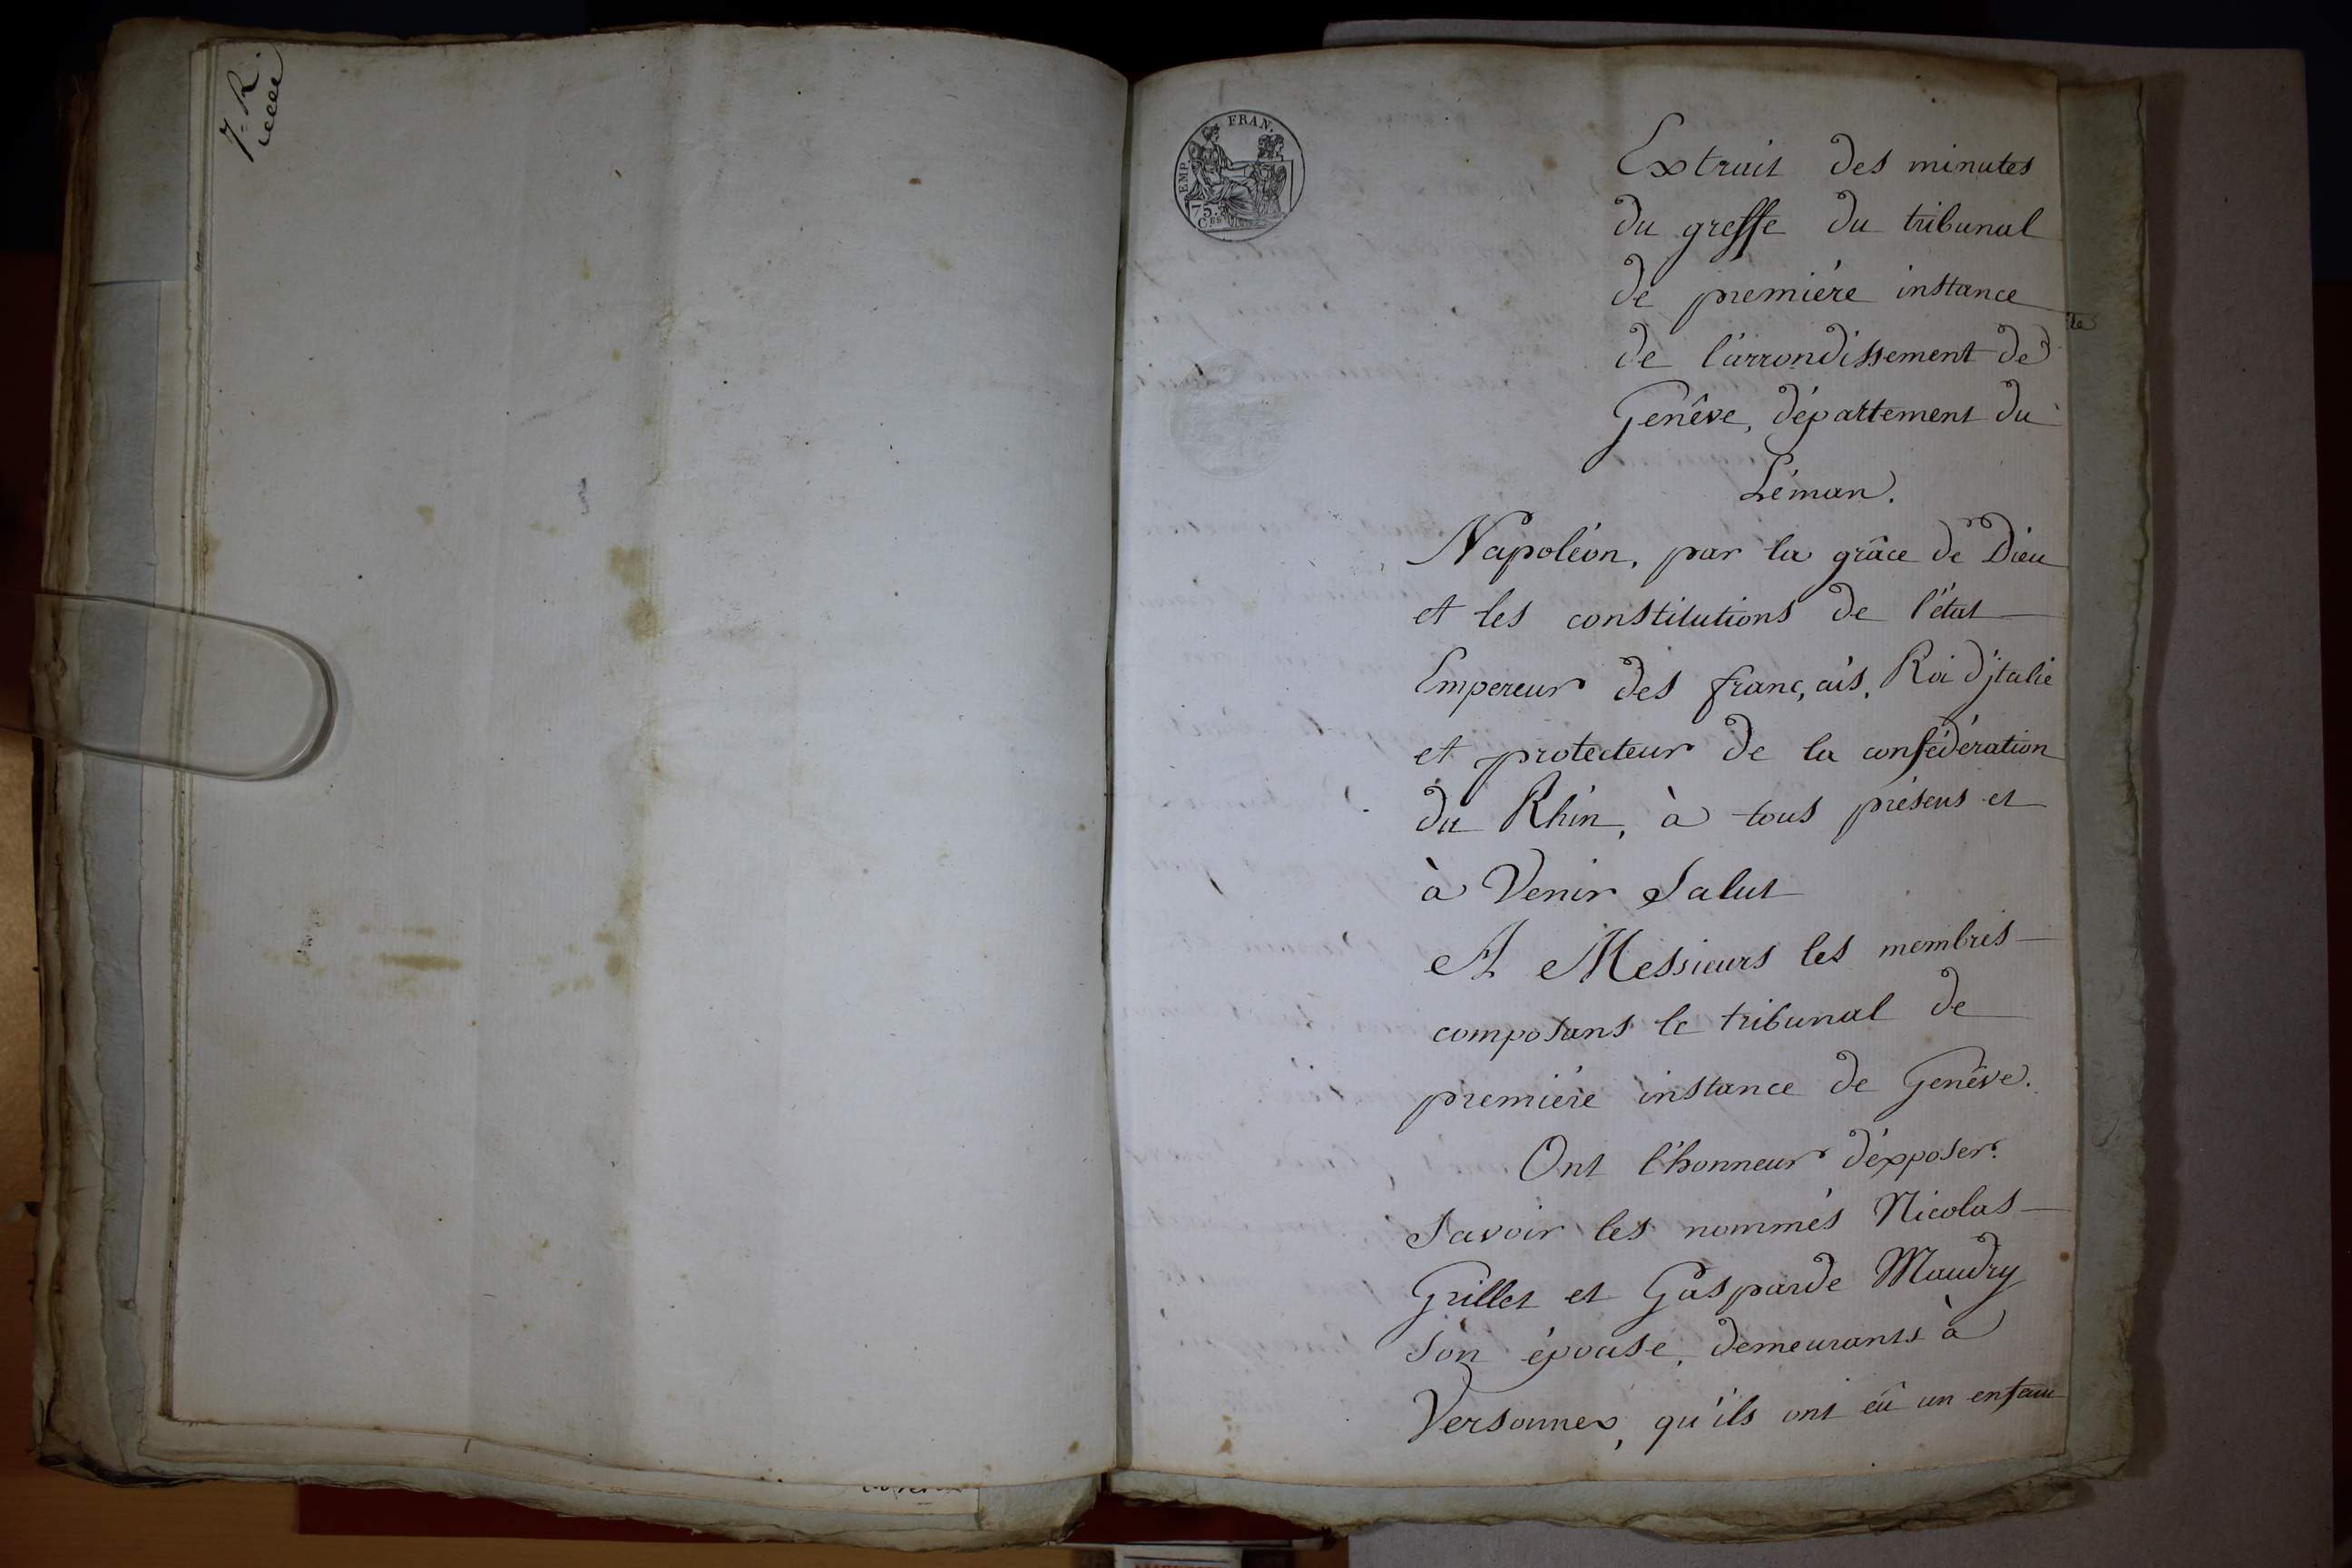 7. R.
EMP. FRAN.
75.
C.es
Extrait des minutes
du greffe du tribunal
de premiére instance
de l'arrondissement de
Genêve, département du
Léman.
Napoléon, par la grâce de Dieu
et les constitutions de l'état
Empereur des français, Roi d'jtalie
et protecteur de la confédération
du Rhin, à tous présens et
à Venir Salut
A Messieurs les membres
composans le tribunal de
premiére instance de Genêve.
Ont l'honneur d'éxposer
Savoir les nommés Nicolas
Grillet et Gasparde Maudry
Son épouse, demeurants à
Versonnex, qu'ils ont eû un enfant